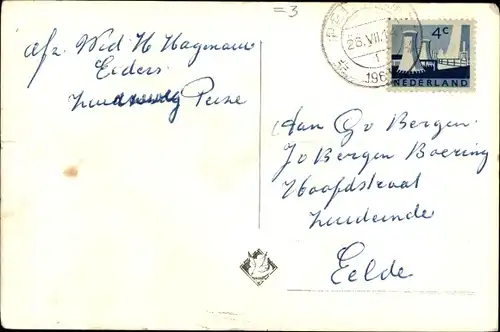 =3
Afz. Wed H Hagenauw
Eiders
Zuurseweg Peize
PEIZE
26.VII.1
1
196
4c
NEDERLAND
Aan Gv Bergen.
Jv Bergen Boering
Hoofdstraat
Zuideinde
Eelde